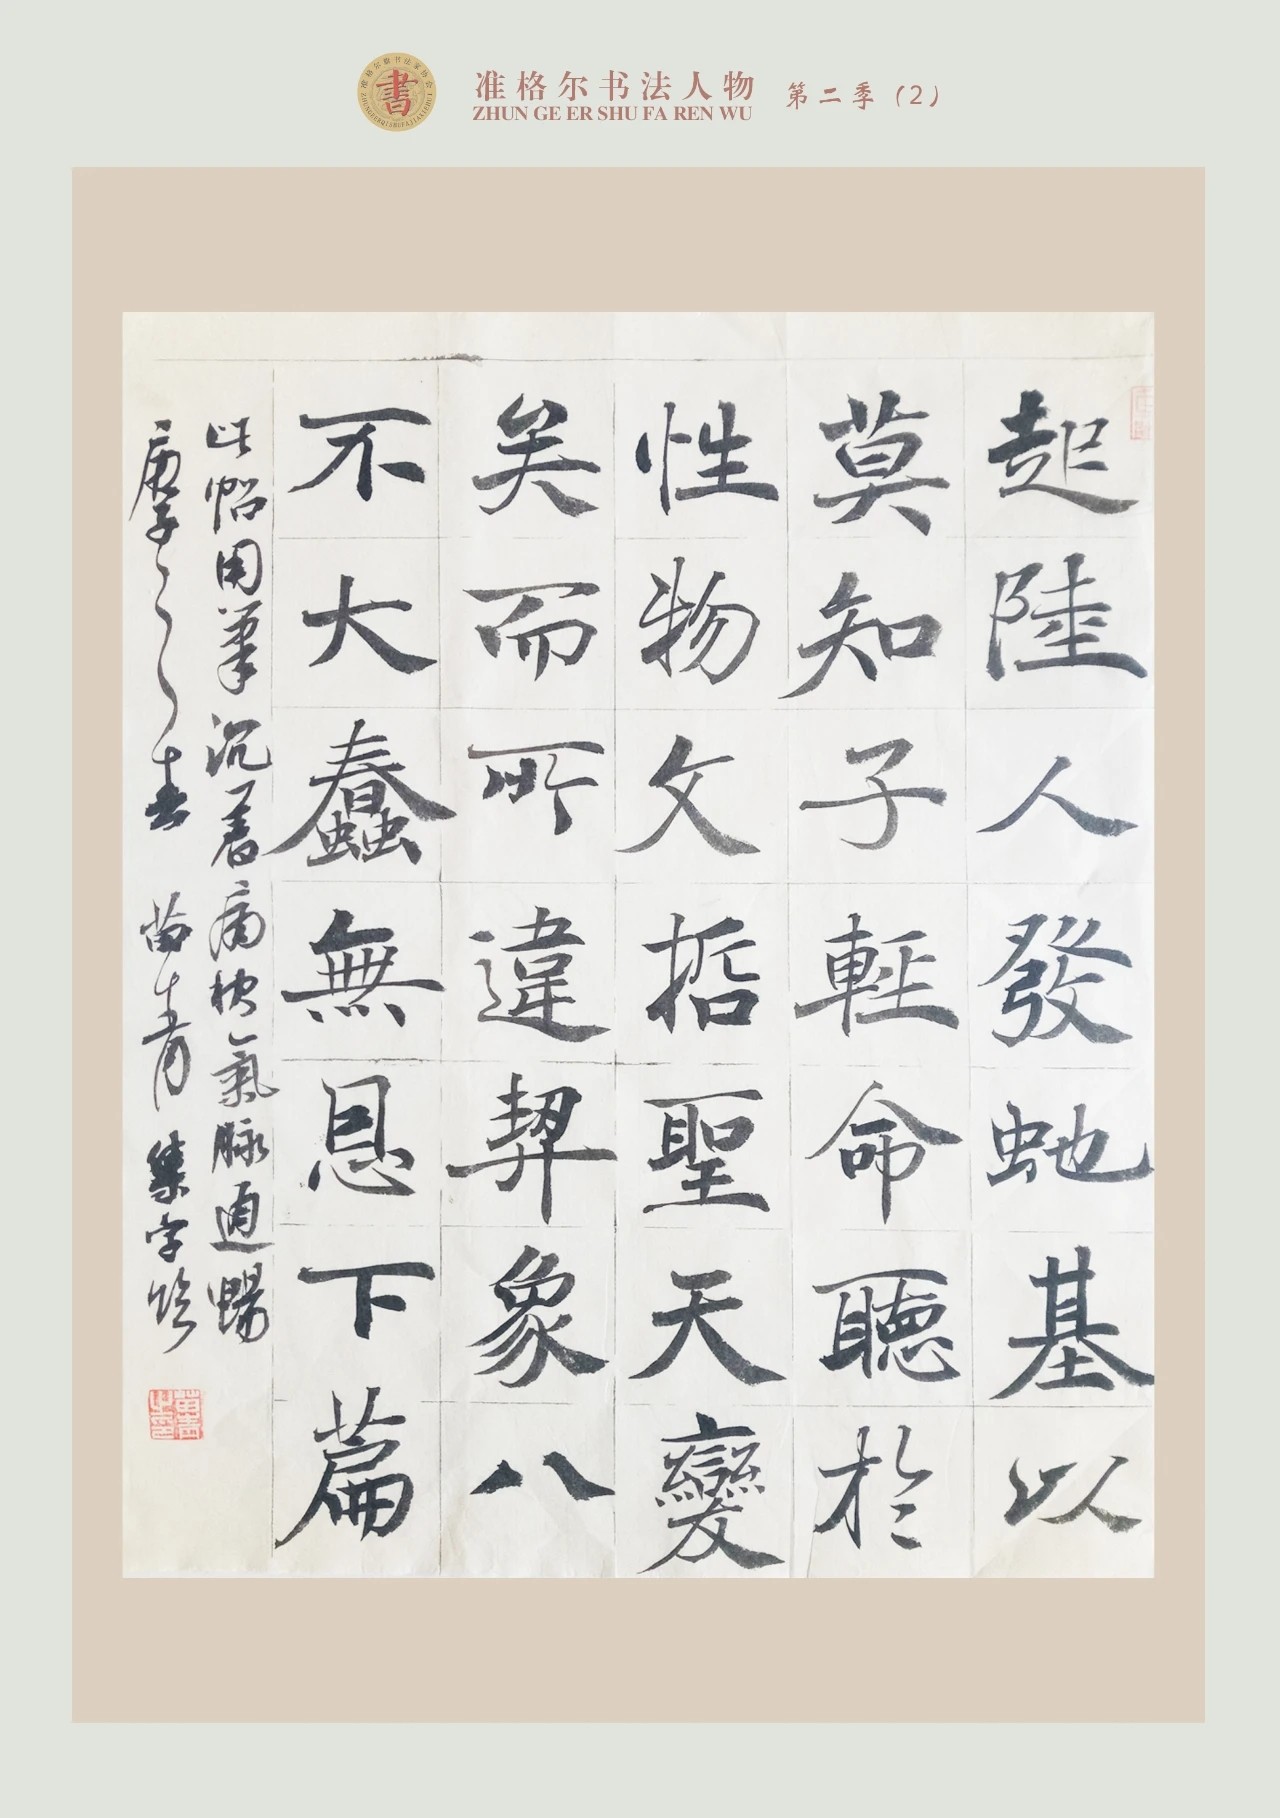 准格尔书法人物
ZHUN GE ER SHU FA REN WU
第二季（2）
起陸人發虵基以
莫知子輕命聽於
性物文哲聖天變
矣而所違契象八
不大蠢無恩下篇
此帖用筆沉着痛快氣脉通暢
庚子之春 苗青 集字臨